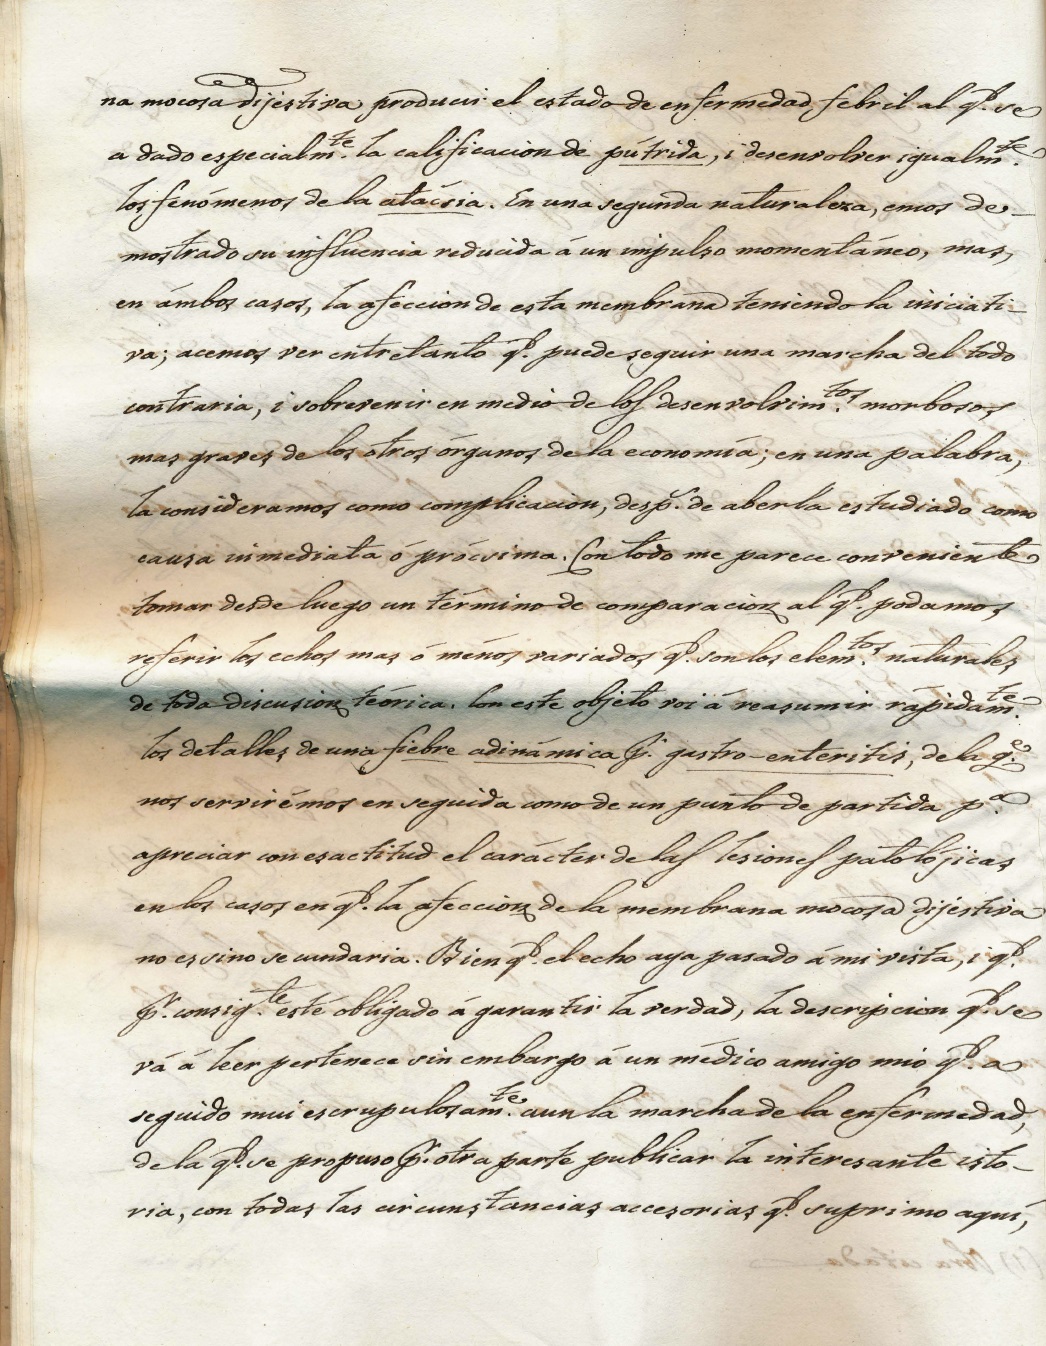 na mocosa dijestiva producir el estado de enfermedad febril al q.e se
a dado especialm.te la calificacion de pútrida, i desenvolver igualm.te
los fenómenos de la atácsia. En una segunda naturaleza, emos de-
mostrado su influencia reducida á un impulso momentáneo, mas,
en ámbos casos, la afeccion de esta membrana teniendo la iniciati-
va; acemos ver entretanto q.e puede seguir una marcha del todo
contraria, i sobrevenir en medio de los desenvolvim.tos morbosos
mas graves de los otros órganos de la economía; en una palabra,
la consideramos como complicacion, desp.s de aberla estudiado como
causa inmediata ó prócsima. Con todo me parece conveniente
tomar desde luego un término de comparacion al q.e podamos
referir los echos mas ó ménos variados q.e son los elem.tos naturales
de toda discusion teórica. Con este objeto voi á reasumir rápidam.te
los detalles de una fiebre adinámica p.r gastro-enteritis, de la q.e
nos servirémos en seguida como de un punto de partida p.a
apreciar con esactitud el carácter de las lesiones patolójicas
en los casos en q.e la afeccion de la membrana mocosa dijestiva
no es sino secundaria. Bien q.e el echo aya pasado á mi vista, i q.e
p.r consig.te esté obligado á garantir la verdad, la descripcion q.e se
vá á leer pertenece sin embargo á un médico amigo mio q.e a
seguido mui escrupulosam.te aun la marcha de la enfermedad,
de la q.e se propuso p.r otra parte publicar la interesante isto-
ria, con todas las circunstancias accesorias q.e suprimo aquí,
(1) Obra citada